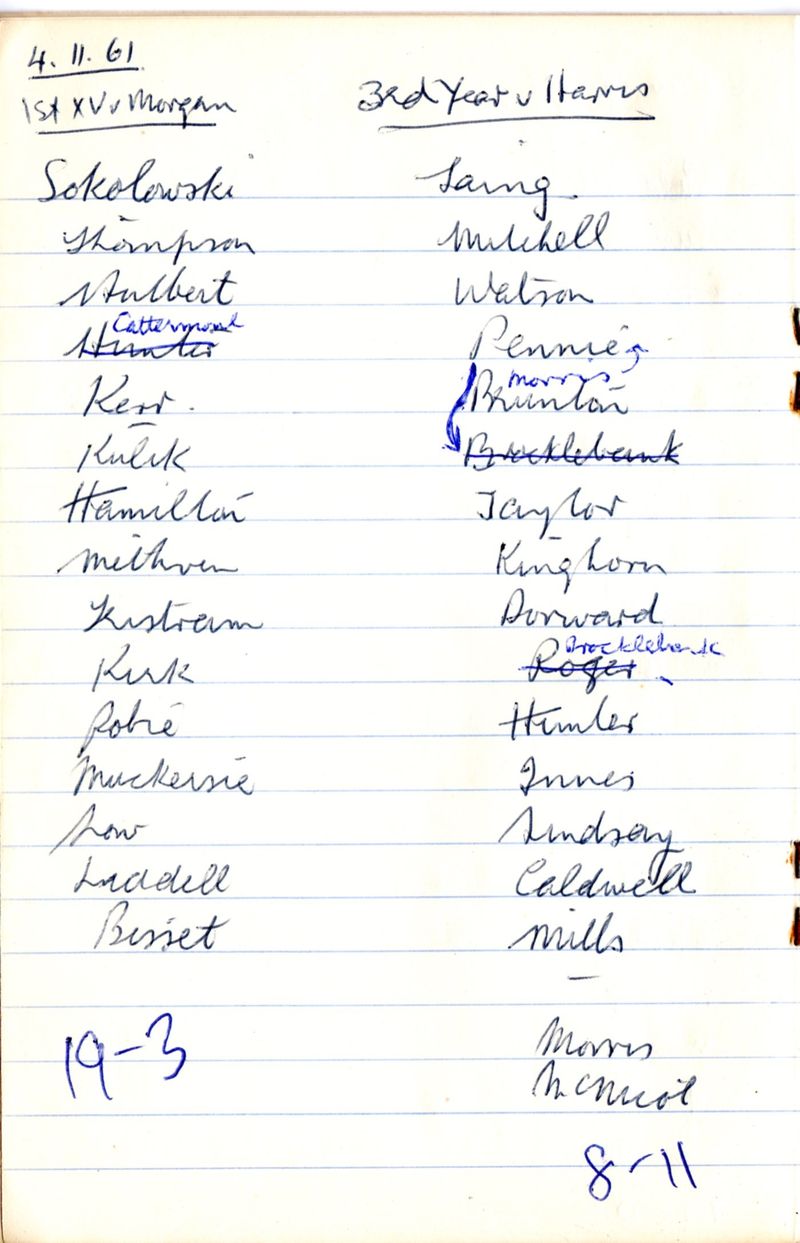 4.11.61
1st XV v Morgan
Sokolowski
Thompson
Hulbert
Cattermoul
Hunter
Kerr.
Kulik
Hamilton
Methven
Kistram
Kirk
Robie
Muckersie
Low
Liddell
Bisset
19-3
3rd Year v Harris
Laing
Mitchell
Watson
Pennie
Morris
Brunton
Brocklebank
Taylor
Kinghorn
Dorward
Brocklebank
Roger
Hunter
Innes
Lindsay
Caldwell
Mills
Morris
McNicol
8-11